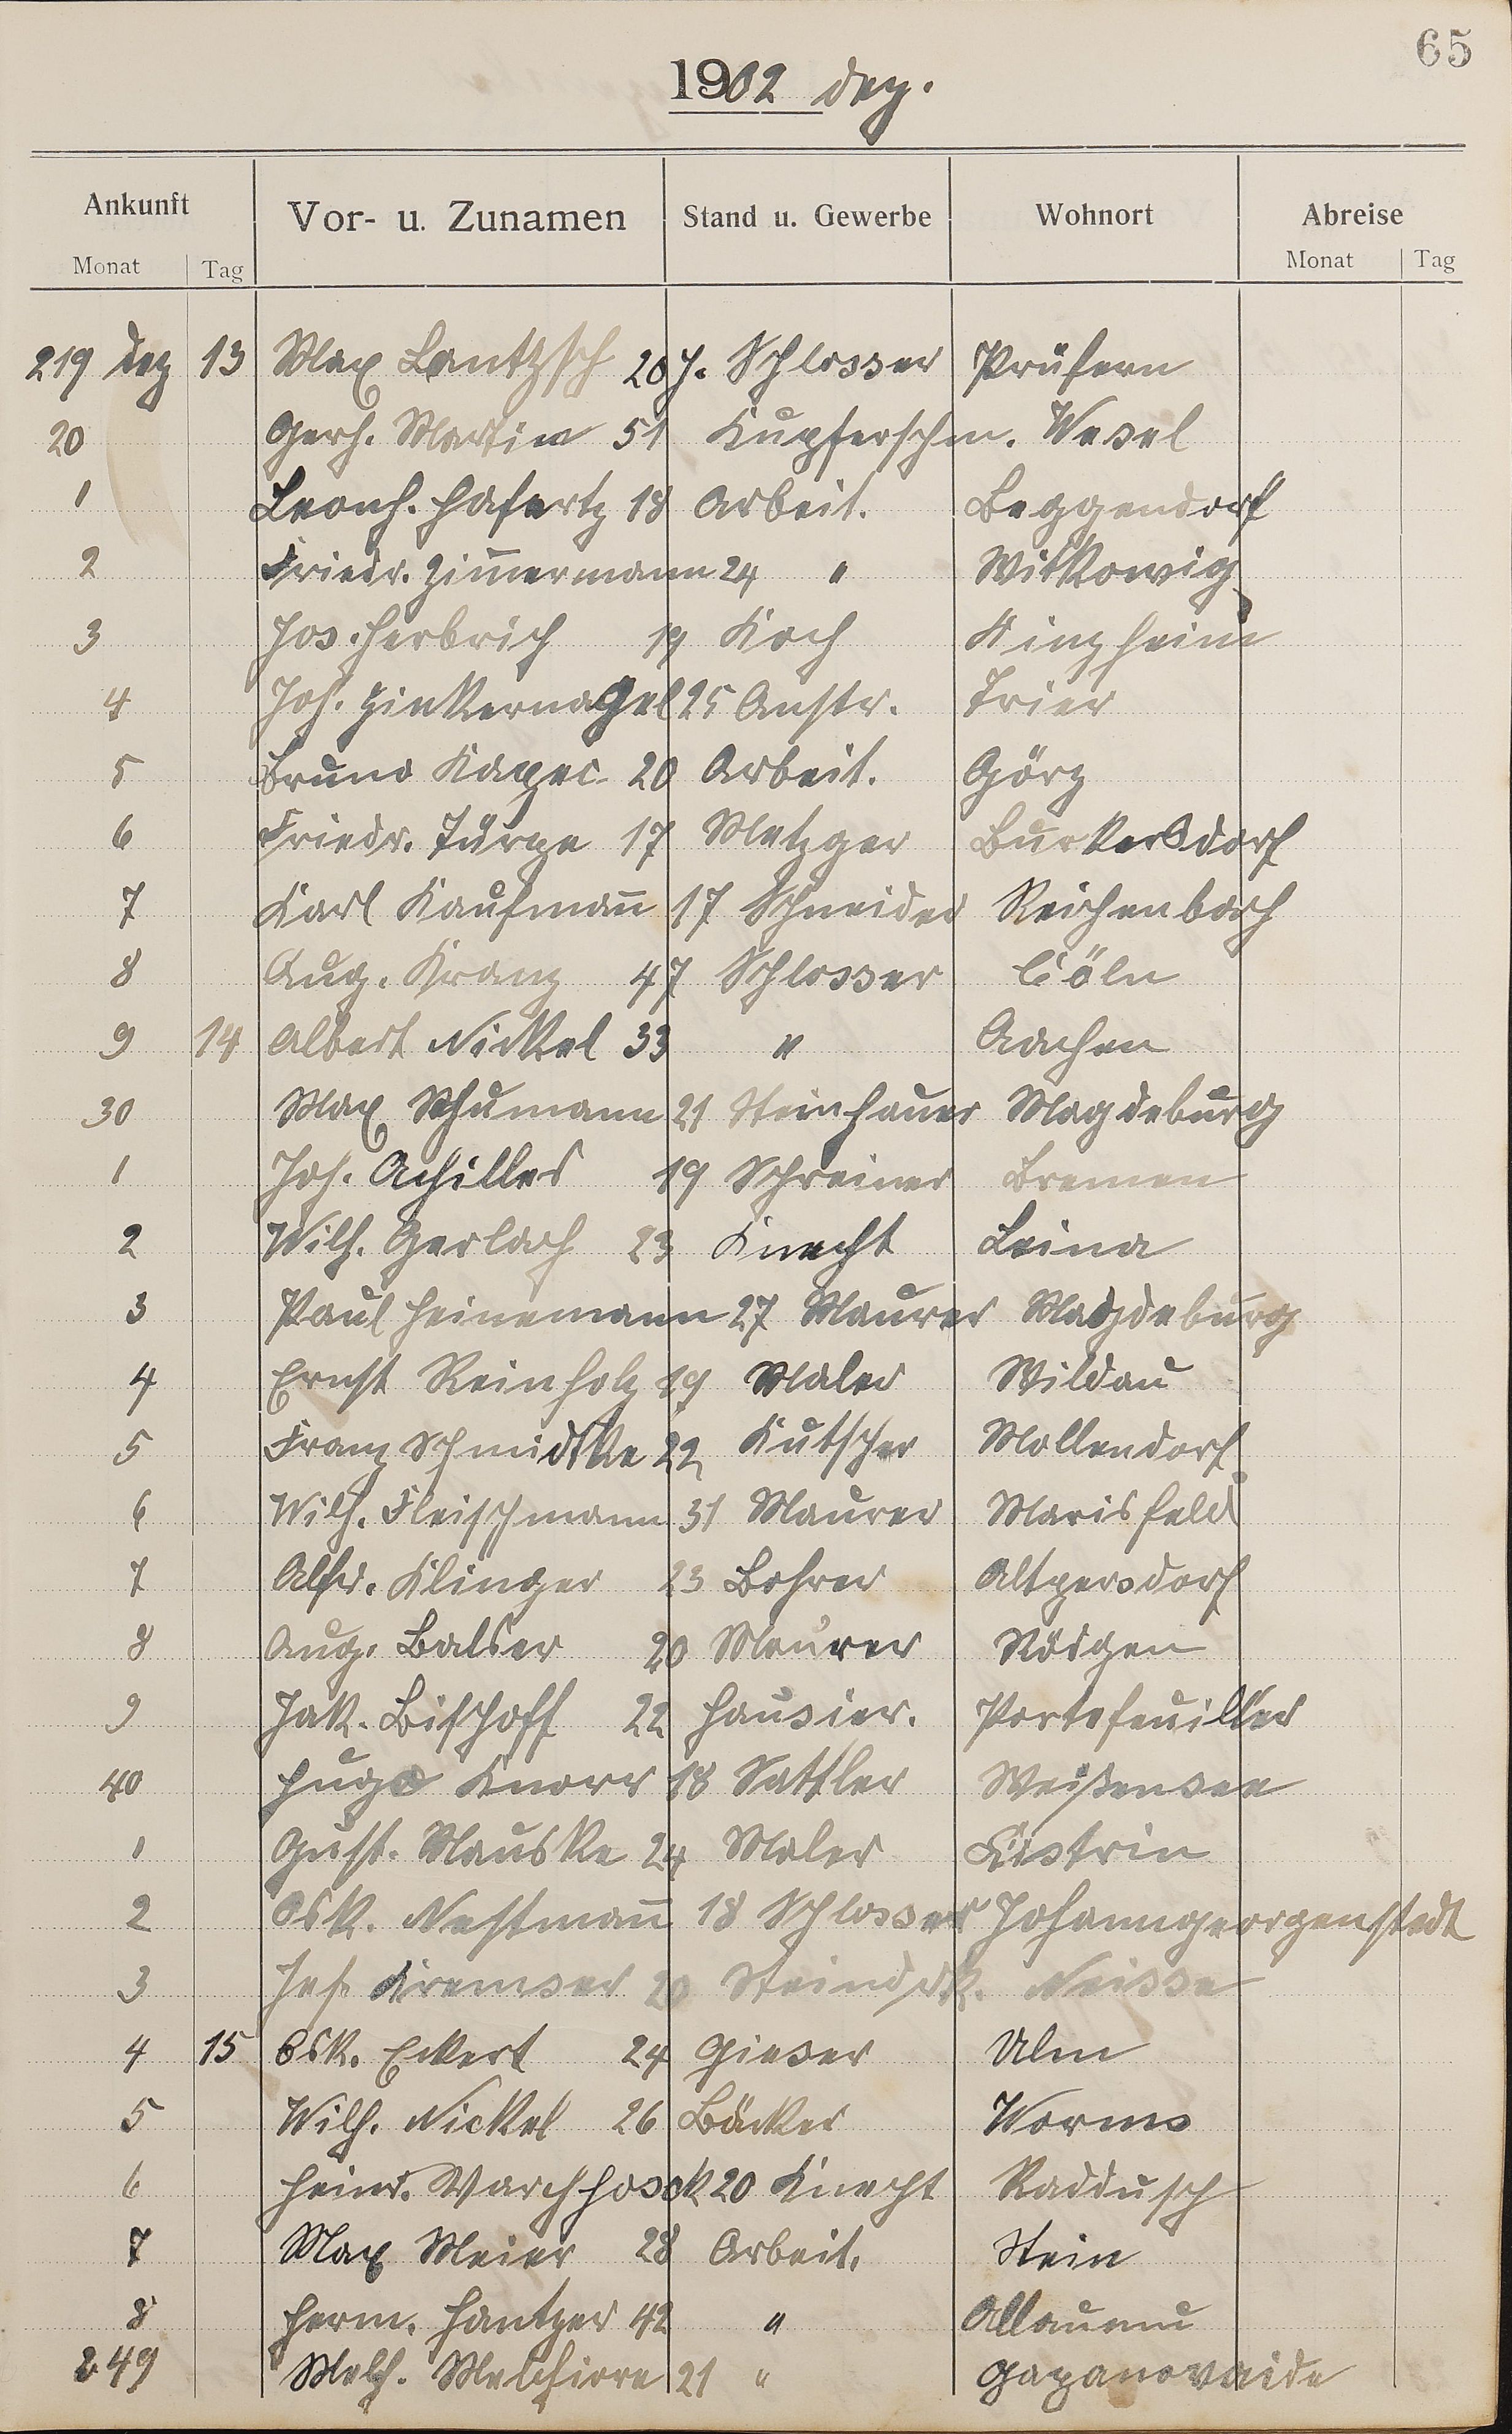 65
1902 Dez.
Ankunft Vor- u. Zunamen Stand u. Gewerbe Wohnort Abreise
Monat Tag Monat Tag
219 Dez 13 Max Lantzsch 20 J. Schlosser Prüfern
20 Gerh. Martin 51 Kupferschm. Wesel
1 Leonh. Hafertz 18 Arbeit. Beggendorf
2 Friedr. Zim̄ermann 24 " Witkowig
3 Jos. Herbrich 19 Koch Kinzheim
4 Joh. Zinkernagel 25 Anstr. Trier
5 Bruno Kapec 20 Arbeit. Görz
6 Friedr. Türpe 17 Metzger Burkersdorf
7 Karl Kaufman̄ 17 Schneider Reichenbach
8 Aug. Kranz 47 Schlosser Cöln
9 14 Albert Nickel 33 " Aachen
30 Max Schumann 21 Steinhauer Magdeburg
1 Joh. Achilles 19 Schreiner Bremen
2 Wilh. Gerlach 23 Knecht Leina
3 Paul Heinemann 27 Maurer Magdeburg
4 Ernst Reinholz 19 Maler Wildau
5 Franz Schmidtke 22 Kutscher Mollendorf
6 Wilh. Fleischmann 31 Maurer Marisfeld
7 Alfr. Klinger 23 Bohrer Altgersdorf
8 Aug. Balser 20 Maurer Rödgen
9 Jak. Bischoff 22 Hausier. Portefeuiller
40 Hugo Knorr 18 Sattler Weißensee
1 Gust. Mauske 24 Maler Küstrin
2 Osk. Nestman̄ 18 Schlosser Johanngeorgenstadt
3 Jos. Kremser 20 Steindrk. Neisse
4 15 Osk. Eckert 24 Gieser Ulm
5 Wilh. Nickel 26 Bäcker Worms
6 Heinr. 20 Knecht Raddusch
7 Max Meier 28 Arbeit. Stein
8 Herm. Hantzer 42 "
249 Melch. Melchiore 21 "